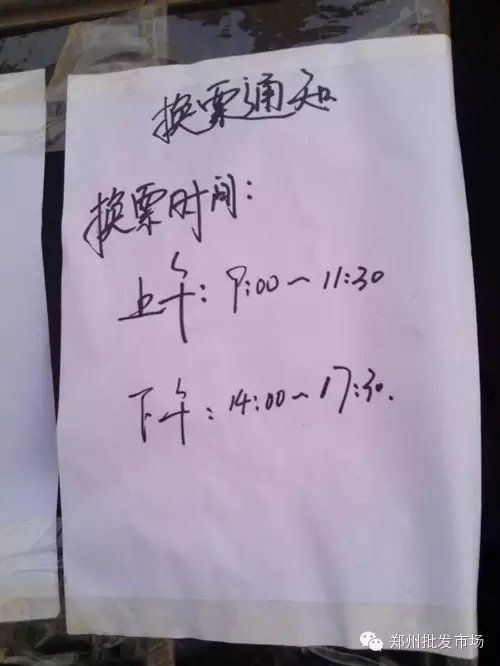 换票通知
换票时间:
上午: 9:00~11:30
下午: 14:00~17:30.
郑州批发市场